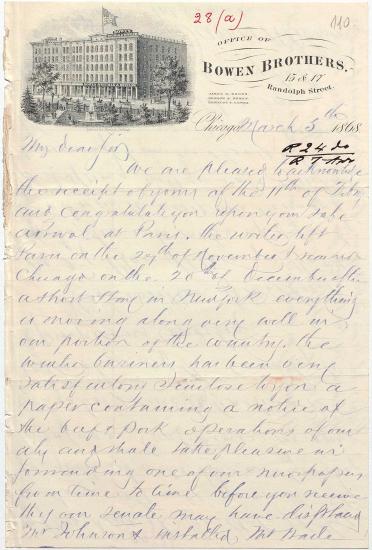 28(a)
110.
OFFICE OF
BOWEN BROTHERS.
15 & 17
Randolph Street.
Chicago March 5th 1868
My dear Sir
R 24 do
We are pleased to acknowledge
the receipt of yours of the 11th of Feby
and congratulate you upon your safe
arrival at Paris. the writer left
Paris on the 29th of November & reached
Chicago on the 20th of December after
a short stay in New York everything
is moving along very well in
our portion of the country. the
winter business has been very
satisfactory I enclose to you a
paper containing a notice of
the beef & pork operations of our
city and shall take pleasure in
forwarding one of our newspapers
from time to time before you receive
they our senate may have displaced
Mr Johnson & installed Mr Wade